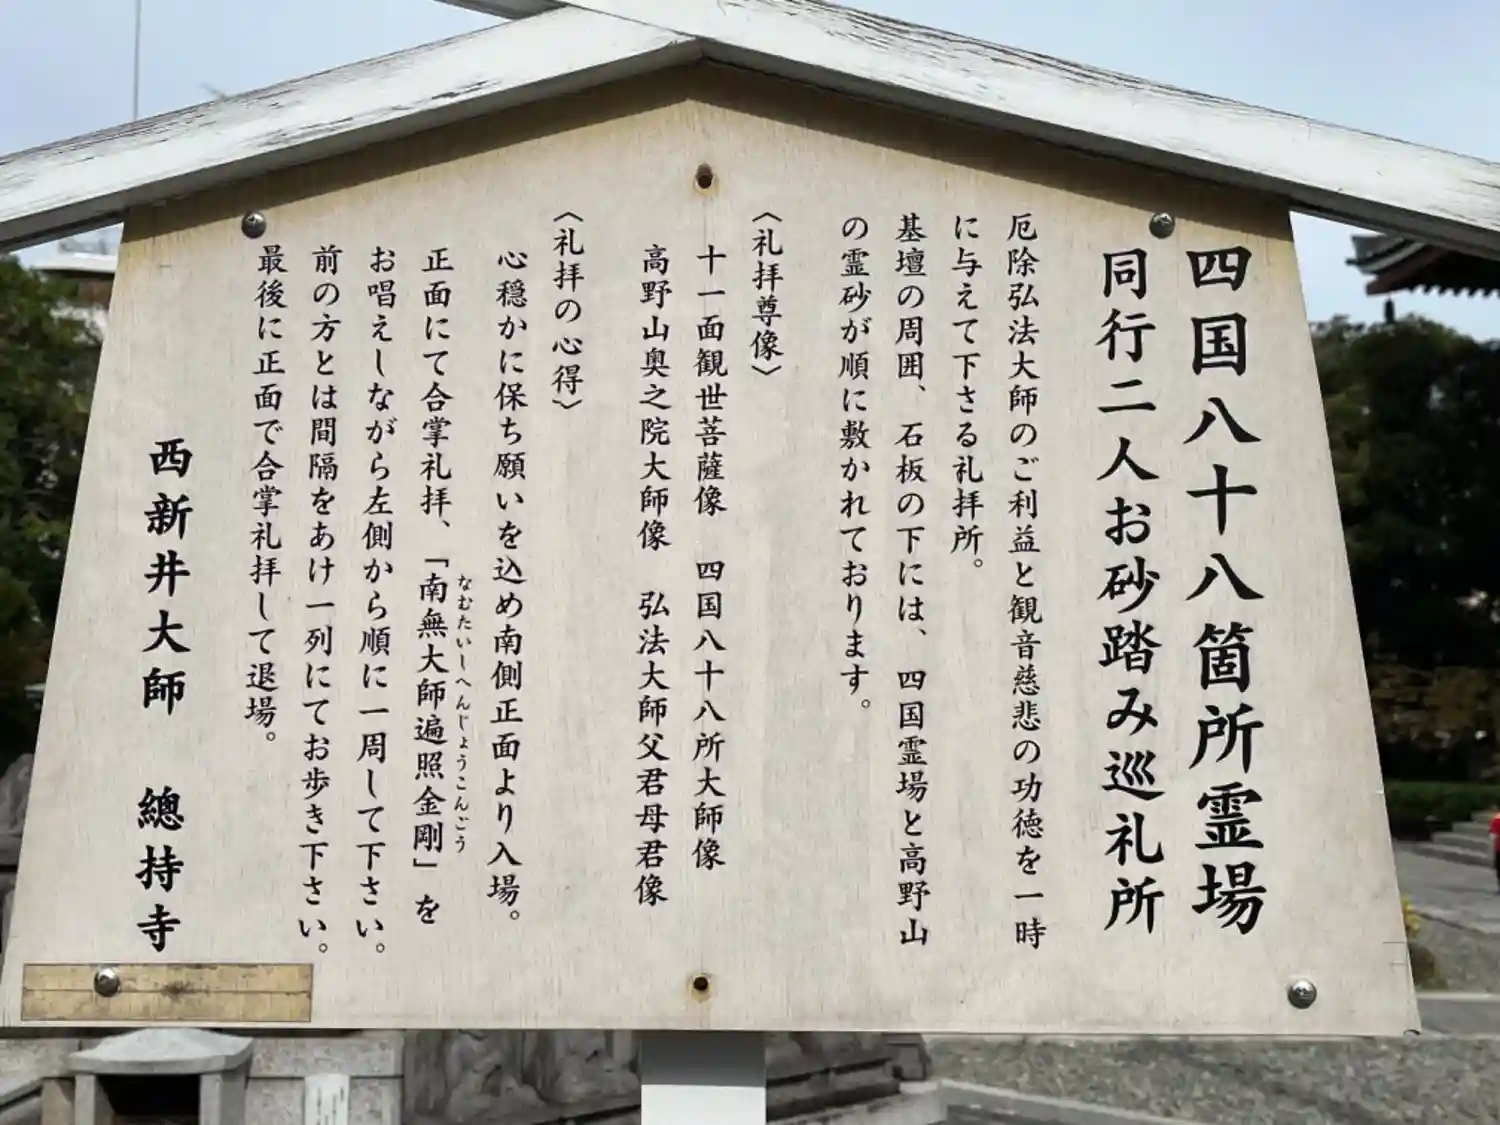 四国八十八箇所霊場
同行二人お砂踏み巡礼所
厄除弘法大師のご利益と観音慈悲の功徳を一時
に与えて下さる礼拝所。
基壇の周囲、石板の下には、四国霊場と高野山
の霊砂が順に敷かれております。
〈礼拝尊像〉
十一面観世菩薩像　四国八十八所大師像
高野山奥之院大師像　弘法大師父君母君像
〈礼拝の心得〉
心穏かに保ち願いを込め南側正面より入場。
正面にて合掌礼拝、「南無大師遍照金剛」を
なむたいしへんじょうこんごう
お唱えしながら左側から順に一周して下さい。
前の方とは間隔をあけ一列にてお歩き下さい。
最後に正面で合掌礼拝して退場。
西新井大師　總持寺